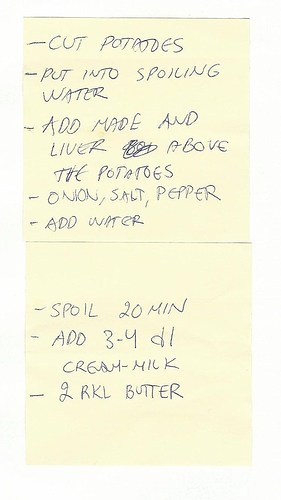 - CUT POTATOES
- PUT INTO SPOILING
WATER
- ADD MADE AND
LIVER ABOVE
THE POTATOES
- ONION, SALT, PEPPER
- ADD WATER
- SPOIL 20 MIN
- ADD 3-4 dl
CREAM-MILK
- 2 RKL BUTTER